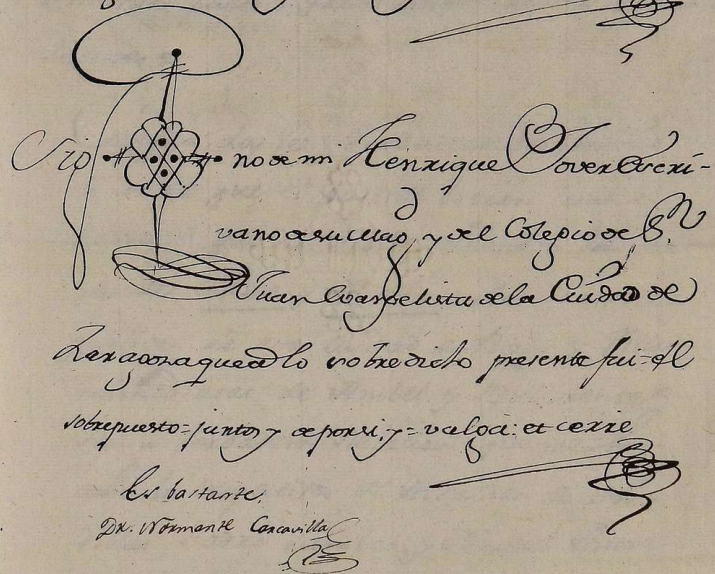 Sig no de mi Henrique Jover Escri-
vano de su Mag.d y del Colegio de S.n
Juan Evangelista de la Ciudad de
Zaragoza que a lo sobredicho presente fui = El
sobrepuesto = juntos y de por si, y = valga: et cerre
Es bastante.
Dr. Normante Carcavilla